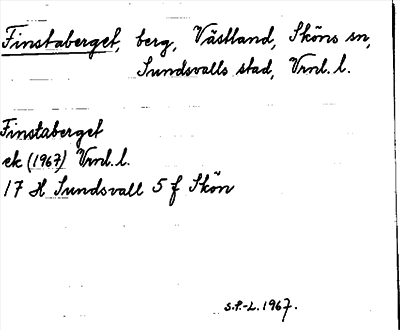 Finstaberget, berg, Västland, Sköns sn,
Sundsvalls stad, Vrnl. l.
Finstaberget
ek (1967) Vrnl. l.
17 H Sundsvall 5 f Skön
S.P.-L. 1967.